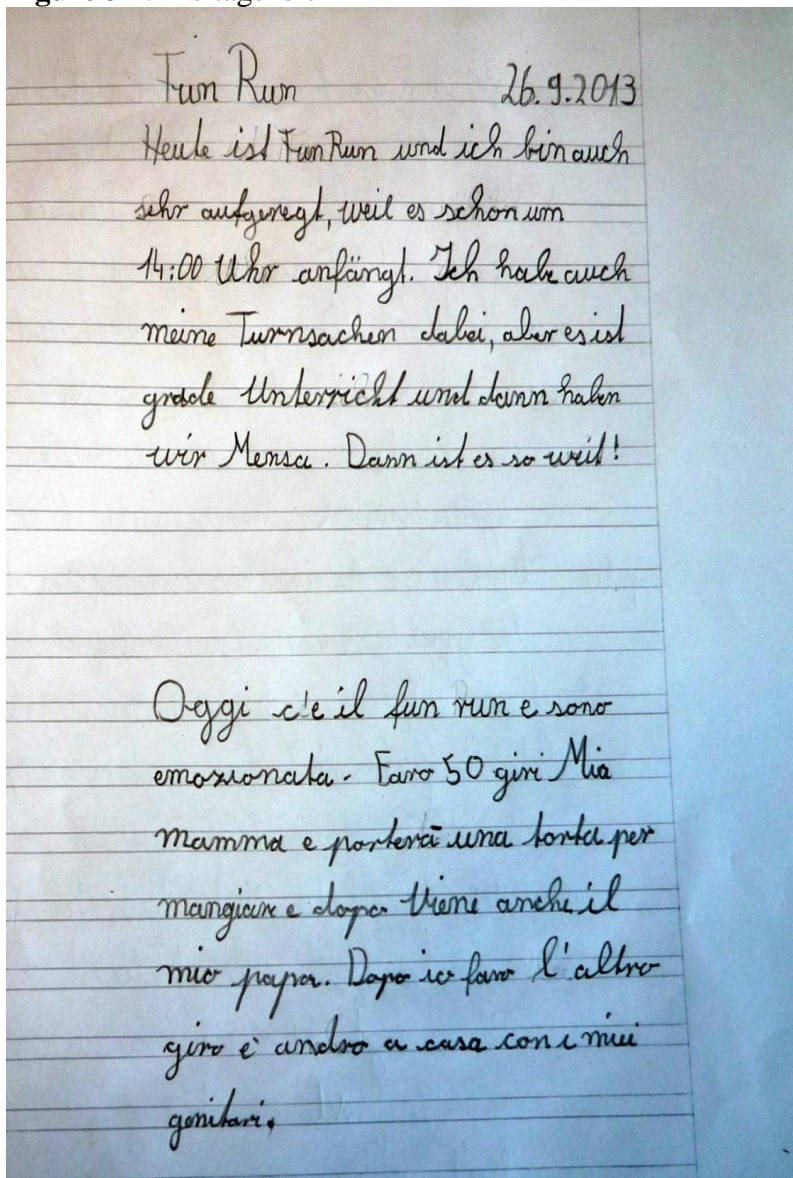 Fun Run 26.9.2013
Heute ist Fun Run und ich bin auch
sehr aufgeregt, weil es schon um
14:00 Uhr anfängt. Ich habe auch
meine Turnsachen dabei, aber es ist
grade Unterricht und dann haben
wir Mensa. Dann ist es so weit!
Oggi c'e il fun run e sono
emozionata. Faro 50 giri Mia
mamma e porterà una torta per
mangiare e dopo viene anche il
mio papa. Dopo io faro l'altro
giro e andro a casa con i miei
genitori.